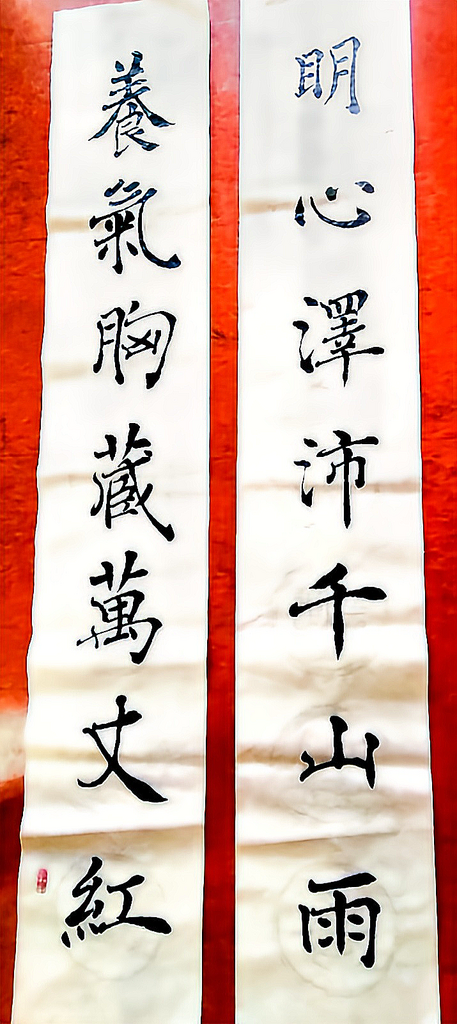 明心澤沛千山雨
養氣胸藏萬丈紅